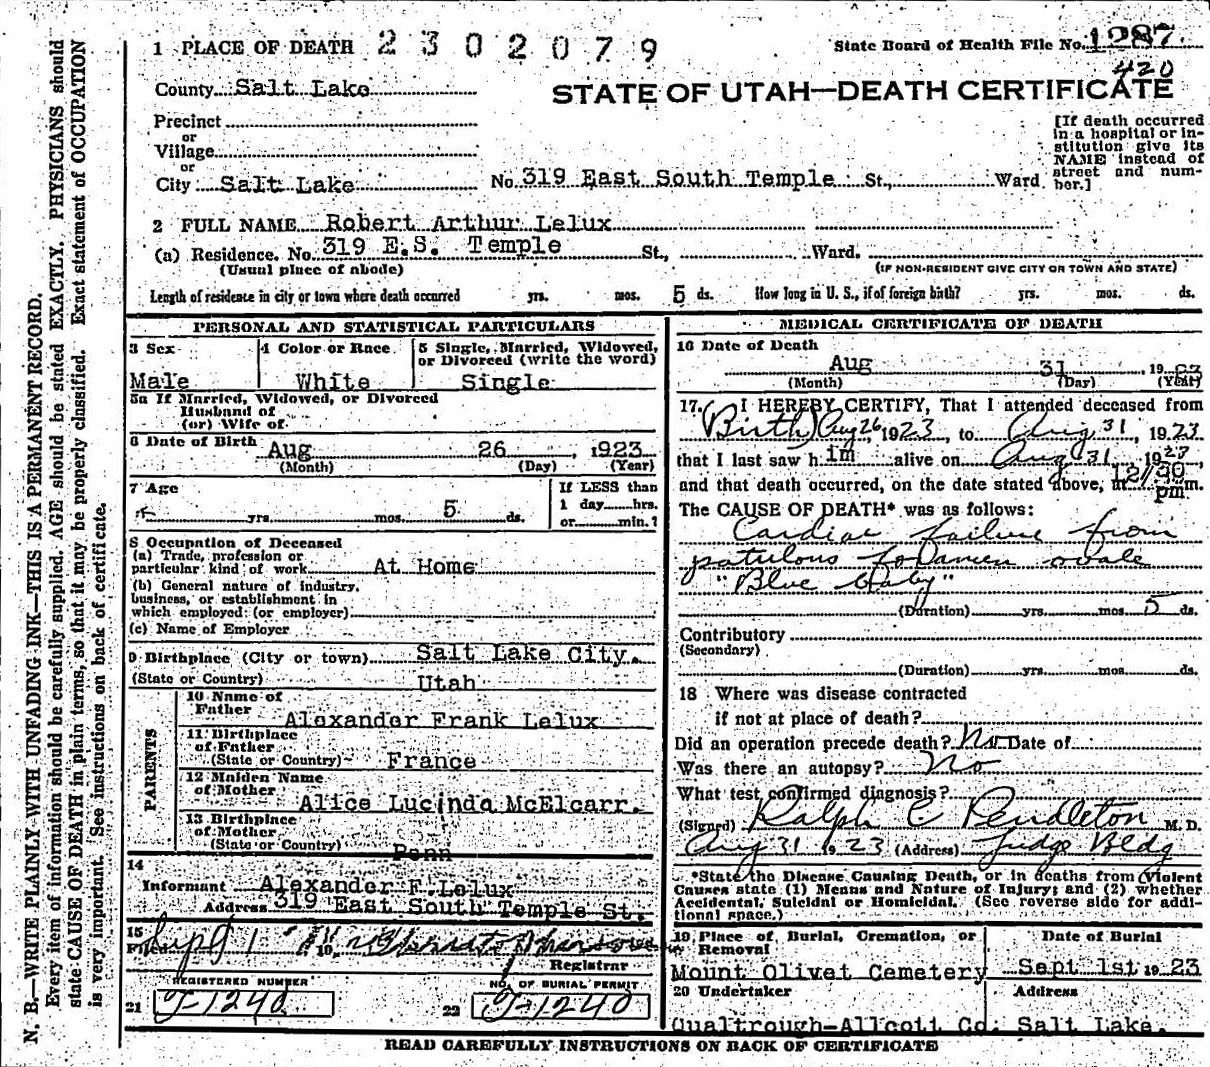 N. B.—WRITE PLAINLY WITH UNFADING INK—THIS IS A PERMANENT RECORD.
Every item of information should be carefully supplied. AGE should be stated EXACTLY. PHYSICIANS should
state CAUSE OF DEATH in plain terms, so that it may be properly classified. Exact statement of OCCUPATION
is very important. See instructions on back of certificate.
1 PLACE OF DEATH 2302079
State Board of Health File No. 1287
420
County Salt Lake
STATE OF UTAH—DEATH CERTIFICATE
Precinct
or
Village
or
City Salt Lake No. 319 East South Temple St., Ward
[If death occurred
in a hospital or in-
stitution give its
NAME instead of
street and num-
ber.]
2 FULL NAME Robert Arthur Lelux
(a) Residence. No. 319 E.S. Temple St., Ward.
(Usual place of abode) (IF NON-RESIDENT GIVE CITY OR TOWN AND STATE)
Length of residence in city or town where death occurred yrs. mos. 5 ds. How long in U. S., if of foreign birth? yrs. mos. ds.
PERSONAL AND STATISTICAL PARTICULARS
3 Sex
Male
4 Color or Race
White
5 Single, Married, Widowed,
or Divorced (write the word)
Single
5a If Married, Widowed, or Divorced
Husband of
(or) Wife of
6 Date of Birth Aug 26, 1923
(Month) (Day) (Year)
7 Age
yrs. mos. 5 ds.
If LESS than
1 day hrs.
or min.?
8 Occupation of Deceased
(a) Trade, profession or
particular kind of work At Home
(b) General nature of industry,
business, or establishment in
which employed (or employer)
(c) Name of Employer
9 Birthplace (City or town) Salt Lake City.
(State or Country) Utah
PARENTS
10 Name of
Father Alexander Frank Lelux
11 Birthplace
of Father
(State or Country) France
12 Maiden Name
of Mother Alice Lucinda McElcarr.
13 Birthplace
of Mother
(State or Country) Penn
14
Informant Alexander F. Lelux
Address 319 East South Temple St.
15
Filed Sept 1 19
Registrar
REGISTERED NUMBER
21 J-1240
NO. OF BURIAL PERMIT
22 J-1240
MEDICAL CERTIFICATE OF DEATH
16 Date of Death
Aug 31, 1923
(Month) (Day) (Year)
17. I HEREBY CERTIFY, That I attended deceased from
(Birth) Aug 26, 1923, to Aug 31, 1923
that I last saw him alive on Aug 31, 1923
and that death occurred, on the date stated above, at 12/30
pm m.
The CAUSE OF DEATH* was as follows:
Cardiac failure from
patulous foramen ovale
"Blue baby"
(Duration) yrs. mos. 5 ds.
Contributory
(Secondary)
(Duration) yrs. mos. ds.
18 Where was disease contracted
if not at place of death?
Did an operation precede death? No Date of
Was there an autopsy? No
What test confirmed diagnosis?
(Signed) Ralph C Pendleton M. D.
Aug 31 1923 (Address) Judge Bldg
*State the Disease Causing Death, or in deaths from Violent
Causes state (1) Means and Nature of Injury; and (2) whether
Accidental, Suicidal or Homicidal. (See reverse side for addi-
tional space.)
19 Place of Burial, Cremation, or
Removal
Mount Olivet Cemetery
Date of Burial
Sept 1st 1923
20 Undertaker
Qualtrough-Allcott Co.
Address
Salt Lake.
READ CAREFULLY INSTRUCTIONS ON BACK OF CERTIFICATE